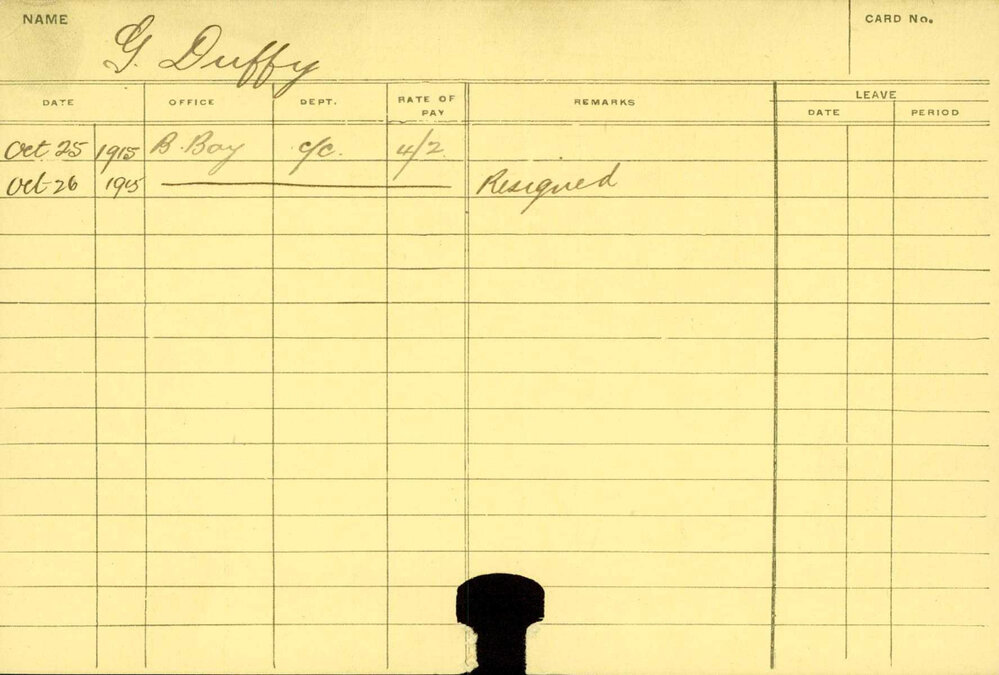 NAME G. Duffy CARD No.
DATE OFFICE DEPT. RATE OF PAY REMARKS LEAVE
DATE PERIOD
Oct 25 1915 B. Boy c/c. 4/2
Oct 26 1915 Resigned